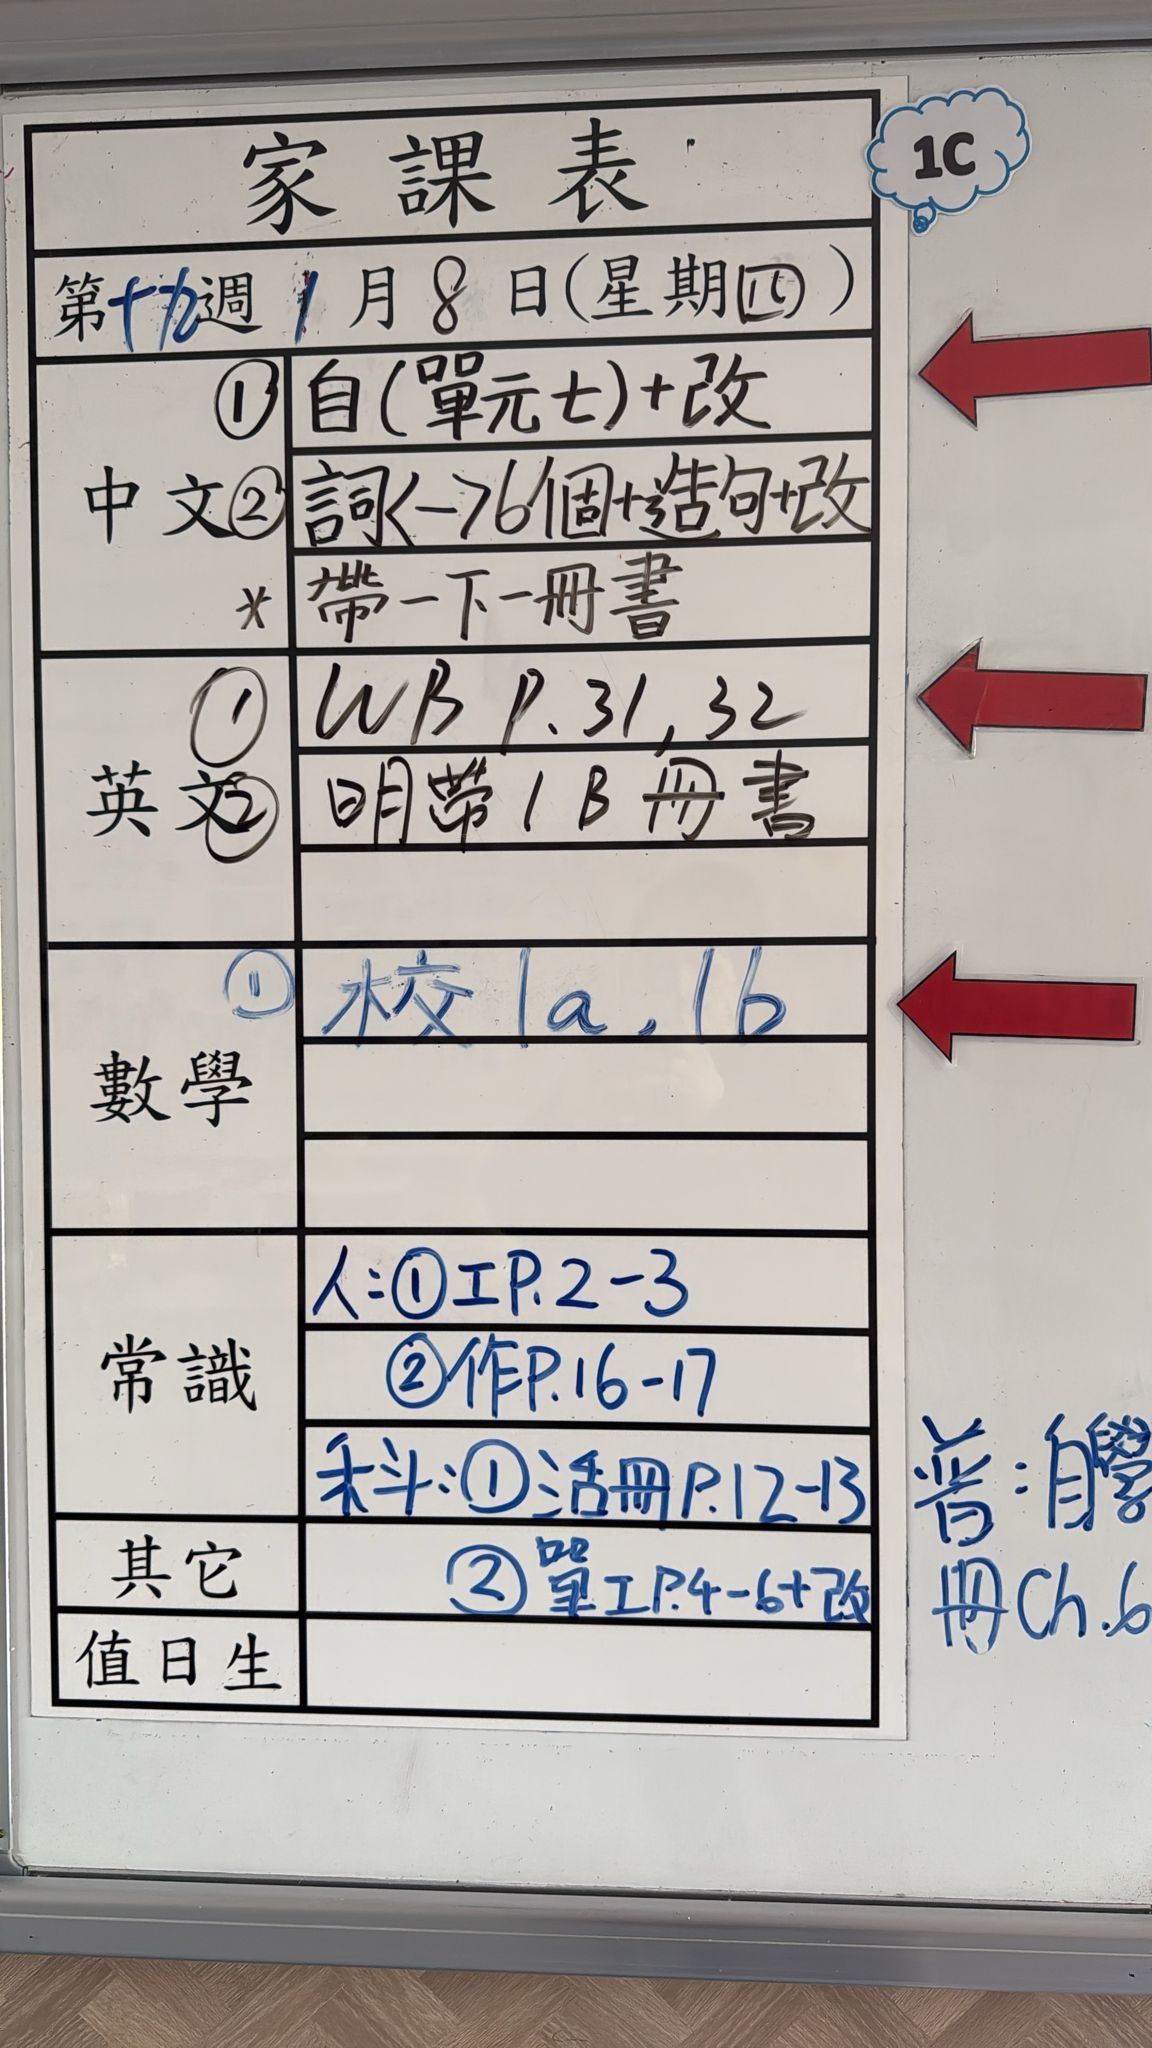 家課表
1C
第十九週 1月8日(星期四)
中文
① 自(單元七)+改
② 詞<一>6個+造句+改
* 帶一下一冊書
英文
① WB P.31,32
② 明帶1B冊書
數學
① 校1a,1b
常識
人:①工P.2-3
②作P.16-17
科:①活冊P.12-13
其它
②單工P.4-6+改
值日生
普:自學
冊Ch.6